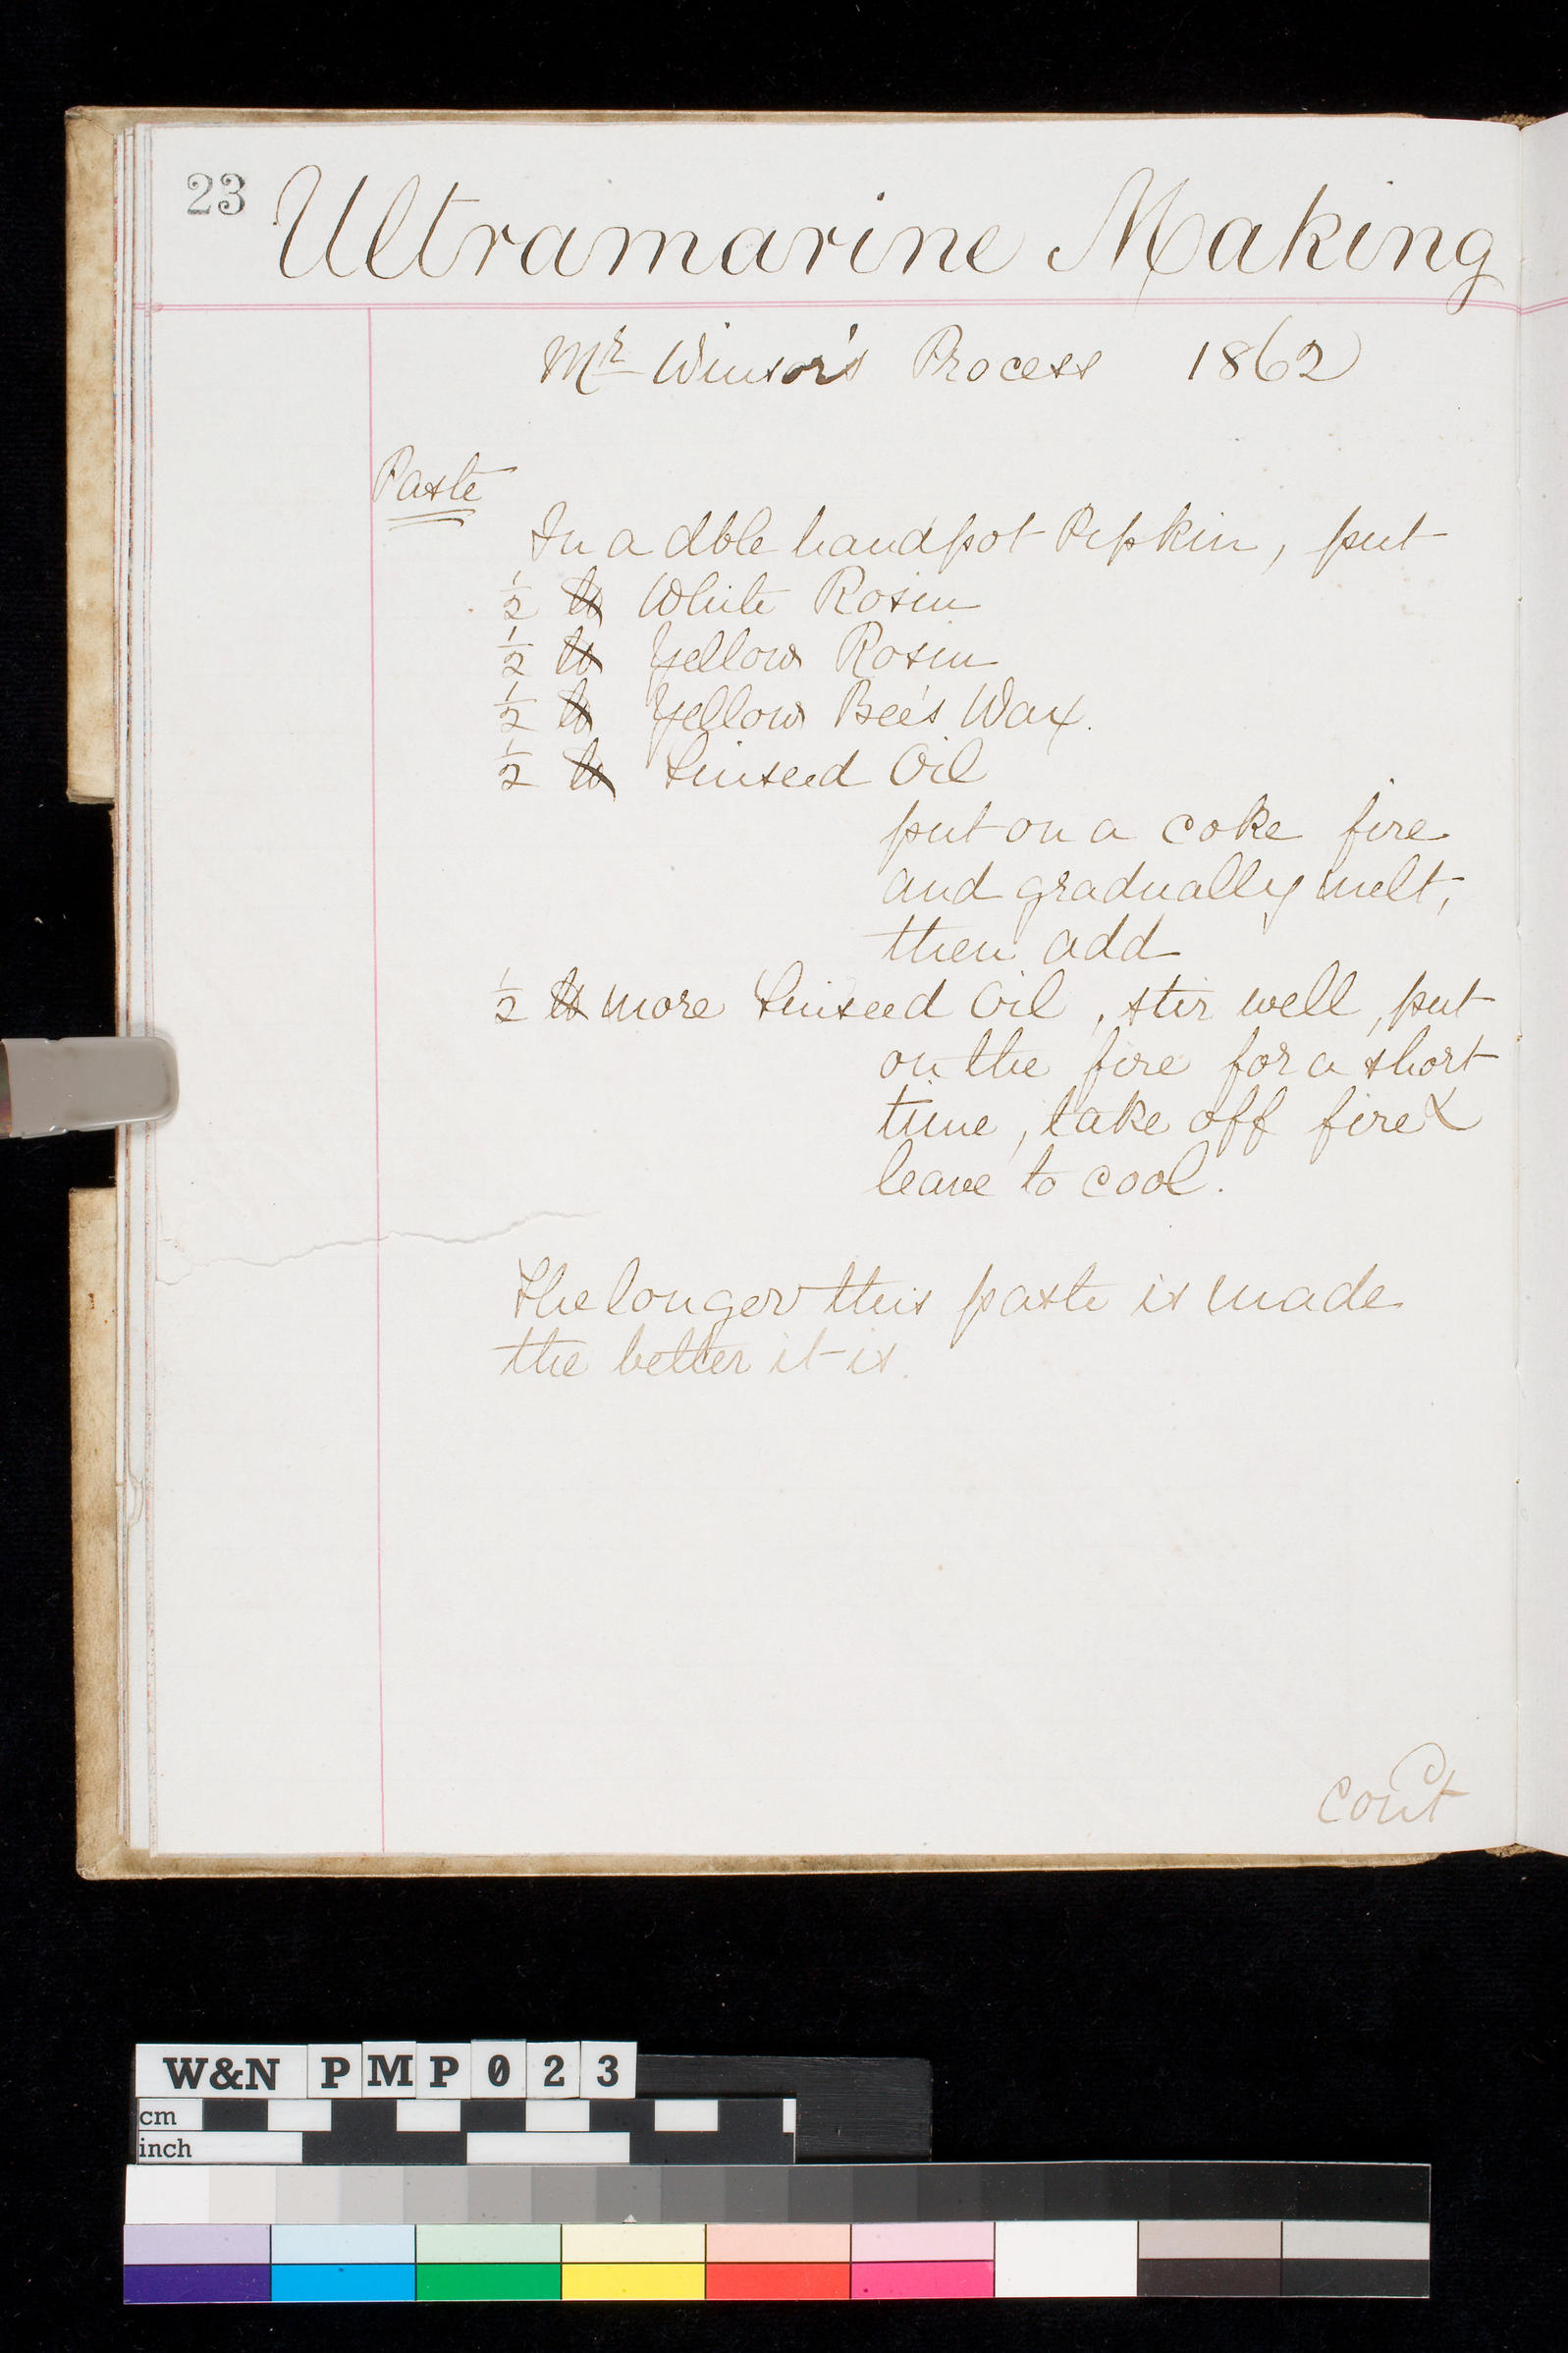 23 Ultramarine Making
Mr Winsor's Process 1862
Paste
In a dble handpot Pipkin, put
½ lb White Rosin
½ lb Yellow Rosin
½ lb Yellow Bee's Wax.
½ lb Linseed Oil
put on a coke fire
and gradually melt,
then add
½ lb more Linseed Oil, stir well, put
on the fire for a short
time, take off fire &
leave to cool.
The longer this paste is made
the better it is.
cont
W&N PMP023
cm
inch